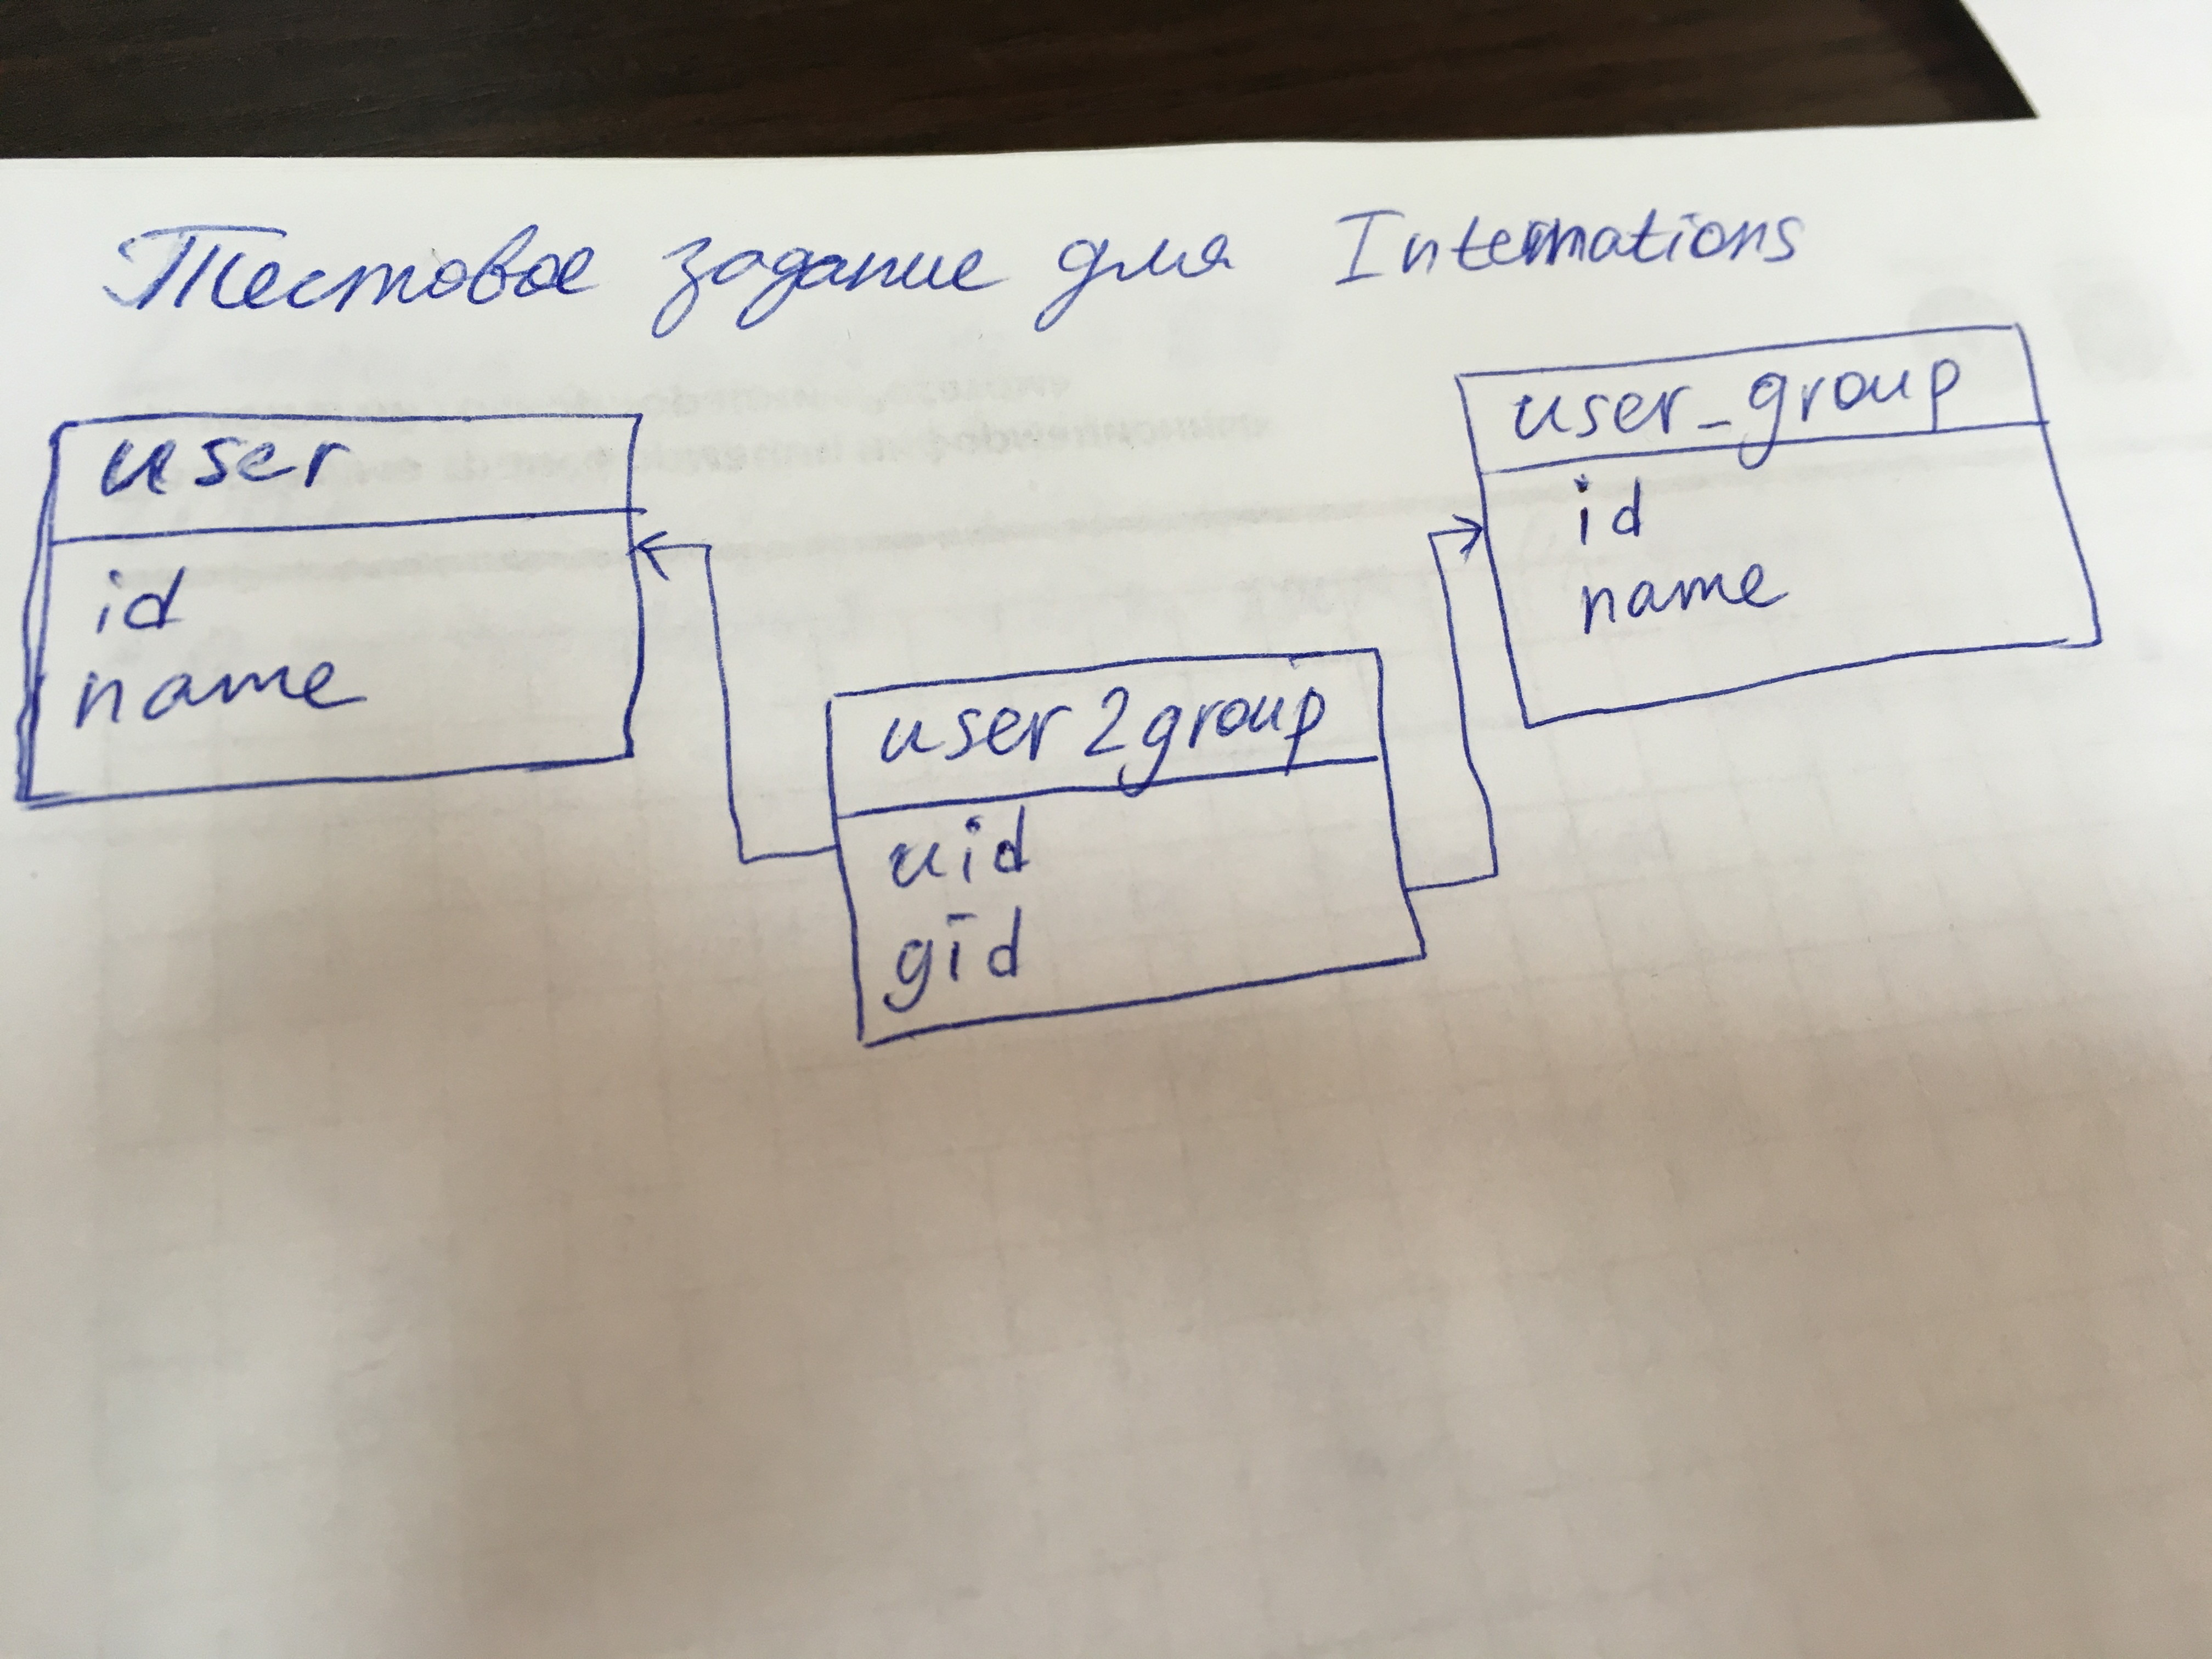 Тестовое задание для Internations
user
id
name
user2group
uid
gid
user_group
id
name